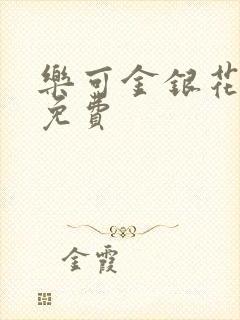 樂可金銀花
免費
金霞